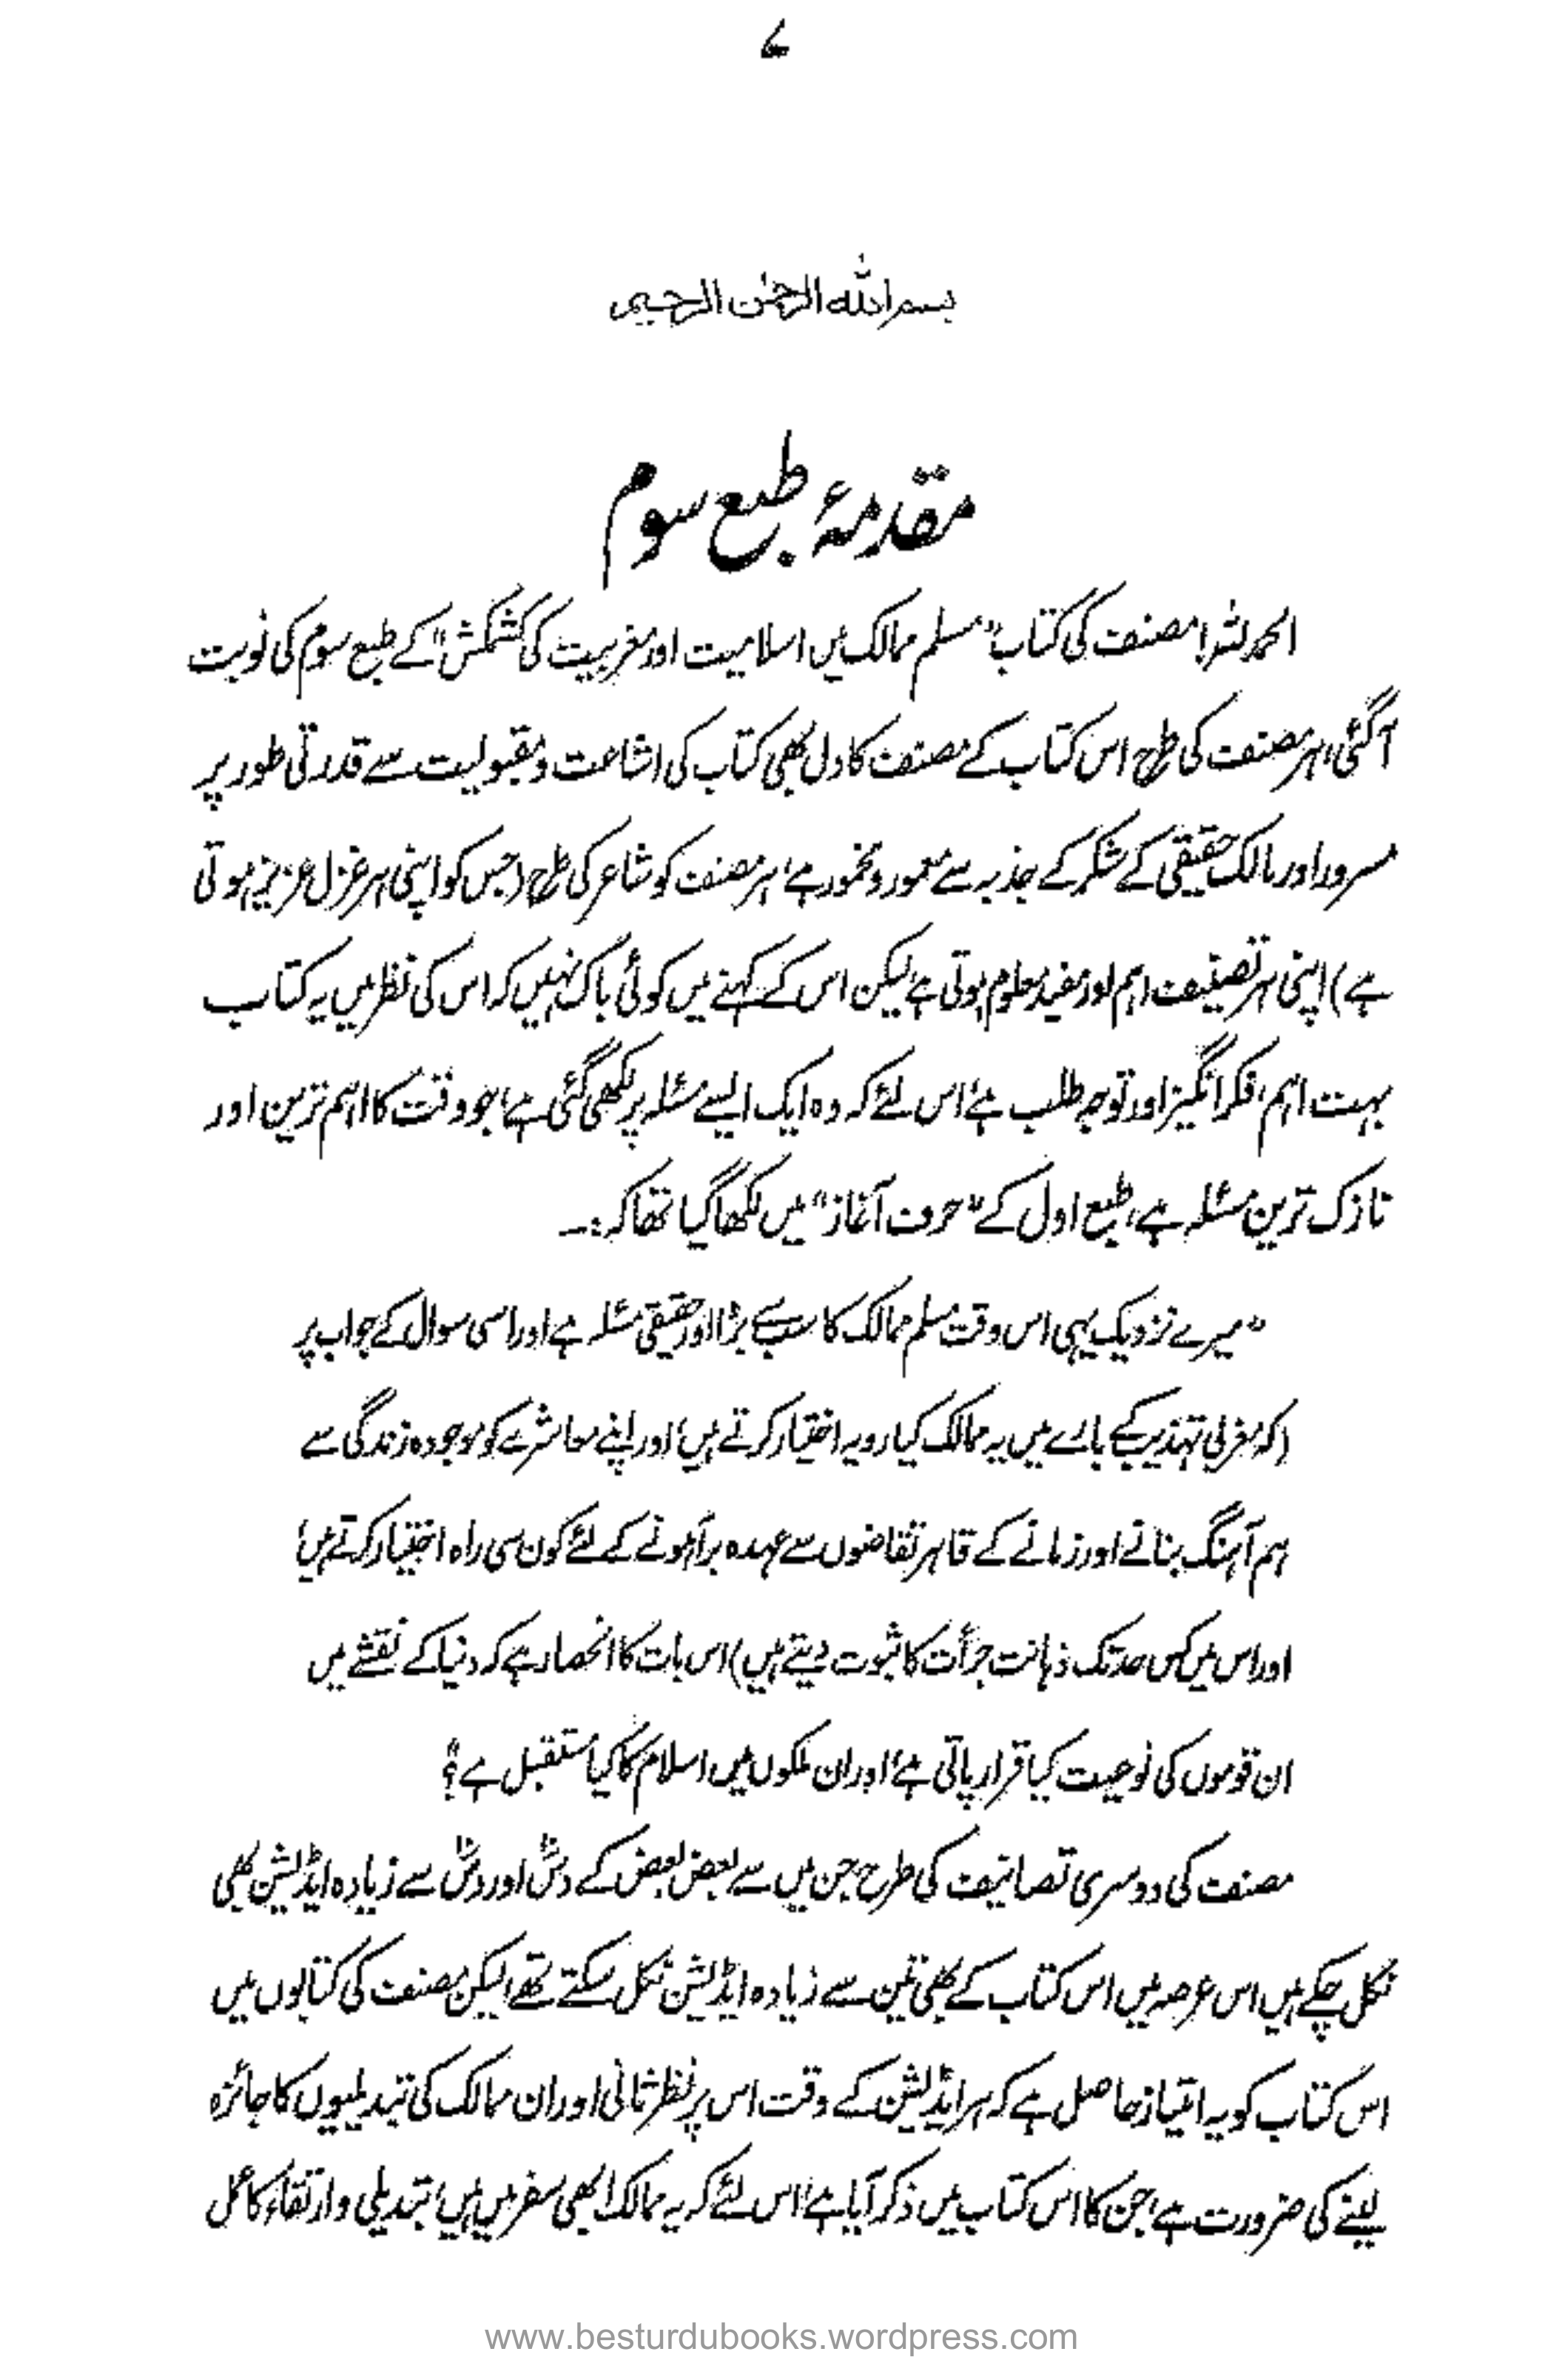 ۷
بسم اللہ الرحمٰن الرحیم
مقدمۂ طبع سوم
الحمد للہ! مصنف کی کتاب "مسلم ممالک میں اسلامیت اور مغربیت کی کشمکش" کے طبع سوم کی نوبت
آگئی، ہر مصنف کی طرح اس کتاب کے مصنف کا دل بھی کتاب کی اشاعت و مقبولیت سے قدرتی طور پر
مسرور اور مالک حقیقی کے شکر کے جذبہ سے معمور و مخمور ہے، ہر مصنف کو شاعر کی طرح (جس کو اپنی ہر غزل عزیز ہوتی
ہے) اپنی ہر تصنیف اہم اور مفید معلوم ہوتی ہے لیکن اس کے کہنے میں کوئی باک نہیں کہ اس کی نظر میں یہ کتاب
بہت اہم، فکر انگیز اور توجہ طلب ہے، اس لئے کہ وہ ایک ایسے مسئلہ پر لکھی گئی ہے، جو وقت کا اہم ترین اور
نازک ترین مسئلہ ہے، طبع اول کے "حرف آغاز" میں لکھا گیا تھا کہ:۔
"میرے نزدیک یہی اس وقت مسلم ممالک کا سب سے بڑا اور حقیقی مسئلہ ہے اور اسی سوال کے جواب پر
(کہ مغربی تہذیب کے بارے میں یہ ممالک کیا رویہ اختیار کرتے ہیں، اور اپنے معاشرے کو موجودہ زندگی سے
ہم آہنگ بنانے اور زمانے کے قاہر تقاضوں سے عہدہ برآ ہونے کے لئے کون سی راہ اختیار کرتے ہیں،
اور اس میں کس حد تک ذہانت جرأت کا ثبوت دیتے ہیں) اس بات کا انحصار ہے کہ دنیا کے نقشے میں
ان قوموں کی نوعیت کیا قرار پاتی ہے، اور ان ملکوں میں اسلام کا کیا مستقبل ہے؟"
مصنف کی دوسری تصانیف کی طرح جن میں سے بعض بعض کے دس اور دس سے زیادہ ایڈیشن بھی
نکل چکے ہیں اس عرصہ میں اس کتاب کے بھی تین سے زیادہ ایڈیشن نکل سکتے تھے، لیکن مصنف کی کتابوں میں
اس کتاب کو یہ امتیاز حاصل ہے کہ ہر ایڈیشن کے وقت اس پر نظر ثانی اور ان ممالک کی تبدیلیوں کا جائزہ
لینے کی ضرورت ہے، جن کا اس کتاب میں ذکر آیا ہے، اس لئے کہ یہ ممالک ابھی سفر میں ہیں، تبدیلی و ارتقاء کا عمل
www.besturdubooks.wordpress.com